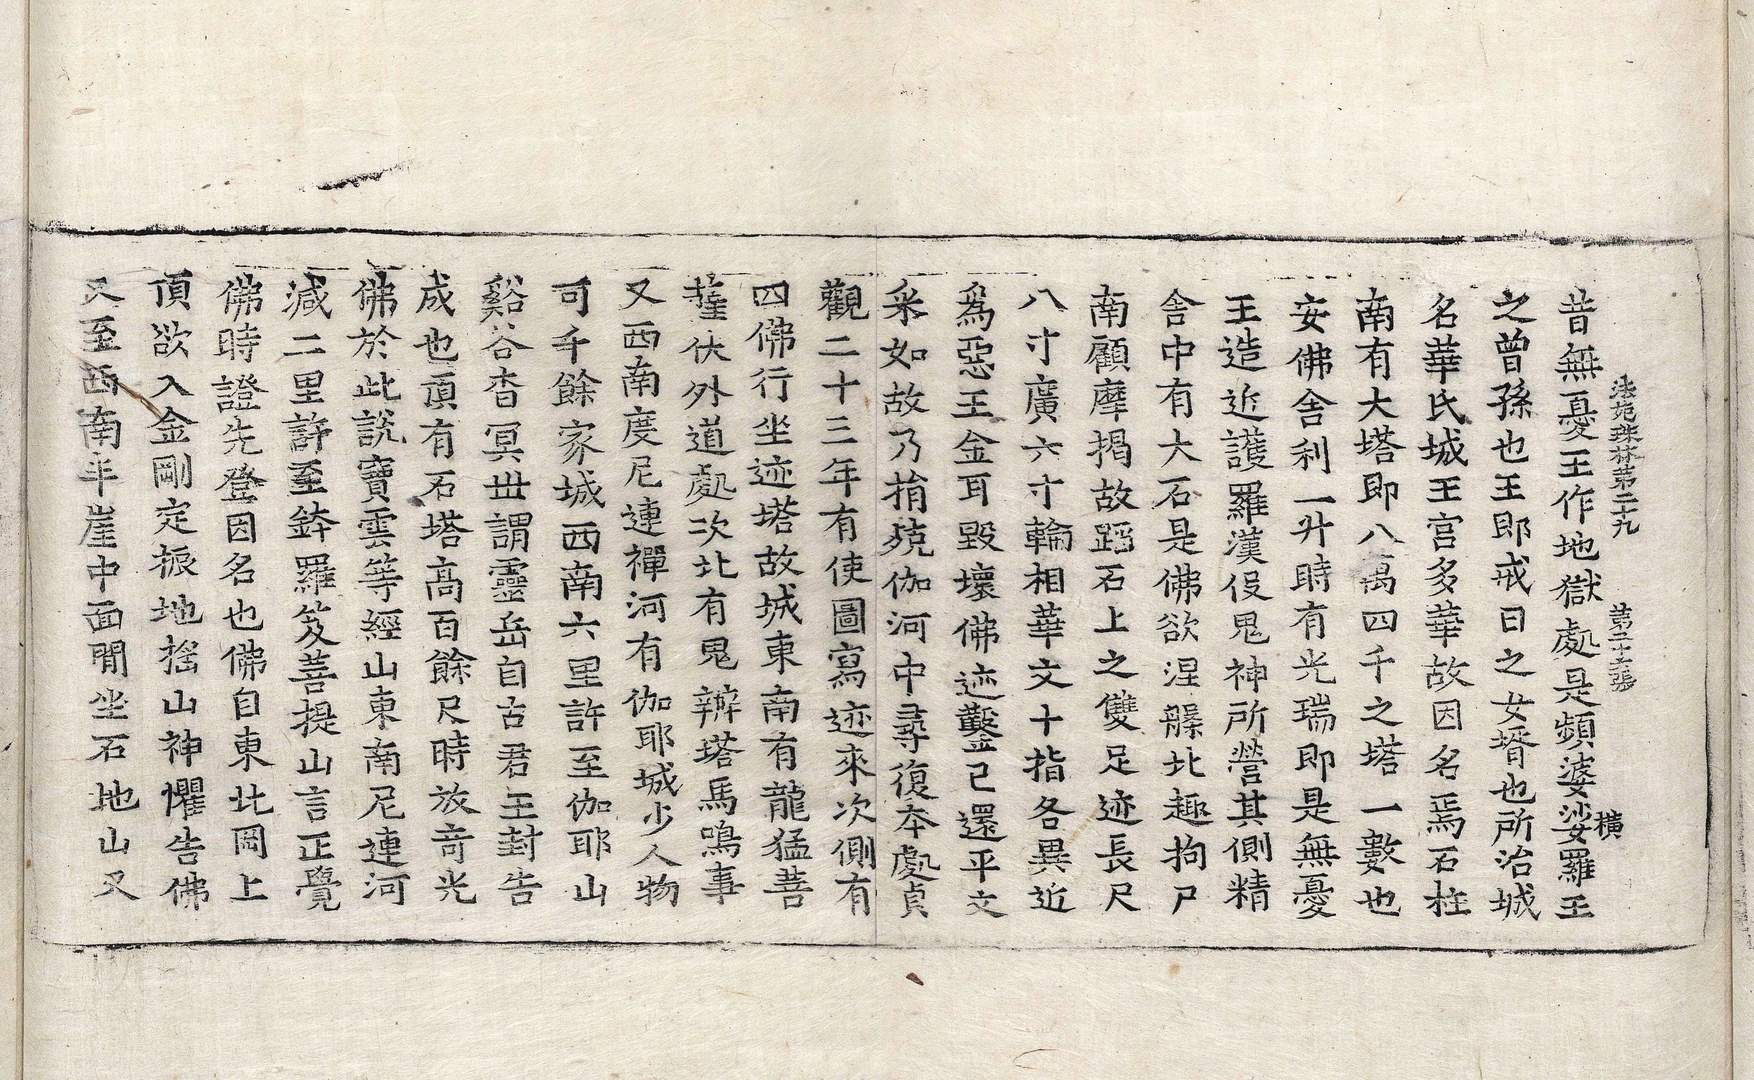 法苑珠林第二十九 第二十五張 橫
昔無憂王作地獄處是頻婆娑羅王
之曾孫也王即戒日之女壻也所治城
名華氏城王宮多華故因名焉石柱
南有大塔即八萬四千之塔一數也
安佛舍利一升時有光瑞即是無憂
王造近護羅漢役鬼神所營其側精
舍中有大石是佛欲涅槃北趣拘尸
南顧摩揭故蹈石上之雙足迹長尺
八寸廣六寸輪相華文十指各異近
為惡王金耳毀壞佛迹鑿已還平文
采如故乃捐殑伽河中尋復本處貞
觀二十三年有使圖寫迹來次側有
四佛行坐迹塔故城東南有龍猛菩
薩伏外道處次北有鬼辯塔馬鳴事
又西南度尼連禪河有伽耶城少人物
可千餘家城西南六里許至伽耶山
谿谷杳冥世謂靈岳自古君王封告
成也頂有石塔高百餘尺時放奇光
佛於此說寶雲等經山東南尼連河
減二里許至鉢羅笈菩提山言正覺
佛時證先登因名也佛自東北岡上
頂欲入金剛定振地搖山神懼告佛
又至西南半崖中面㵎坐石地山又